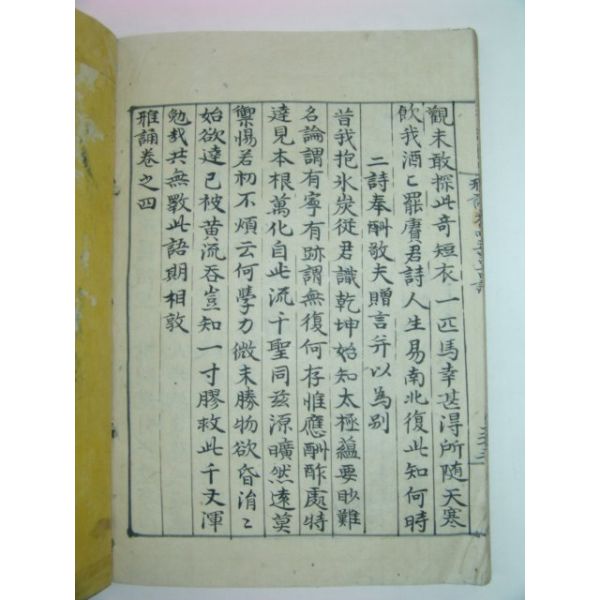 觀未敢探此奇短衣一匹馬幸甚得所隨天寒
飮我酒〻罷賡君詩人生易南北復此知何時
二詩奉酬敬夫贈言并以為別
昔我抱氷炭從君識乾坤始知太極蘊要眇難
名論謂有寧有跡謂無復何存惟應酬酢處特
達見本根萬化自此流千聖同玆源曠然遠莫
禦惕若初不煩云何學力微未勝物欲昏涓〻
始欲達已被黄流吞豈知一寸膠救此千丈渾
勉哉共無斁此語期相敦
雅誦卷之四